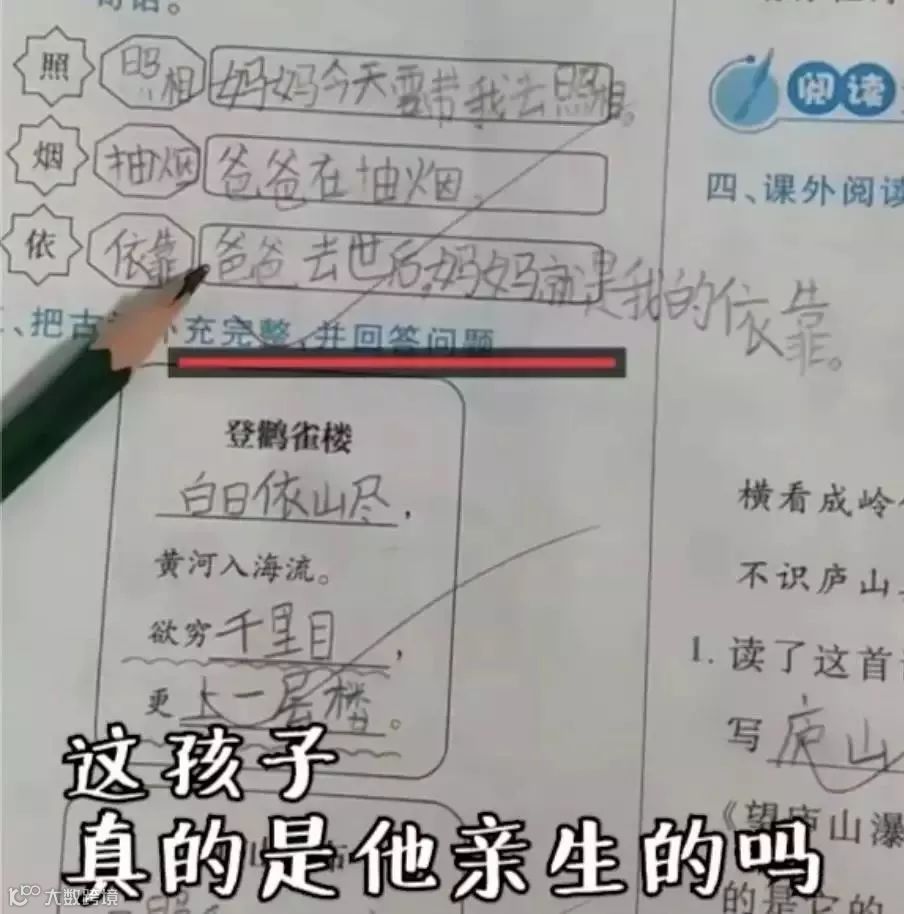 照 照相 妈妈今天要带我去照相。
烟 抽烟 爸爸在抽烟.
依 依靠 爸爸去世后,妈妈就是我的依靠。
把古 补充完整,并回答问题
登鹳雀楼
白日依山尽,
黄河入海流。
欲穷千里目,
更上一层楼。
阅读
四、课外阅读
横看成岭
不识庐山
1.读了这首
写庐山
《望庐山瀑
的是它的
这孩子
真的是他亲生的吗
大数跨境